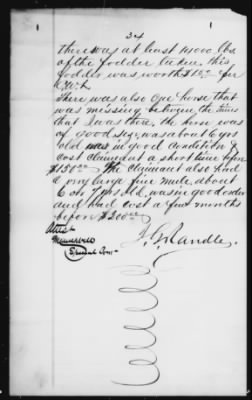 34
there was at least 14000 lbs
of the fodder taken. This
fodder was worth $1.50 per
Cwt.
There was also one horse that
was missing between the times
that I was there, the horse was
of good size, was about 6 yrs
old was in good condition &
cost claimant a short time before
$150.00 The claimant also had
a very large fine mule about
6 or 7 yrs old, was in good order
and had cost a few months
before $200.00
Attest
Special Com
J. G. Randle